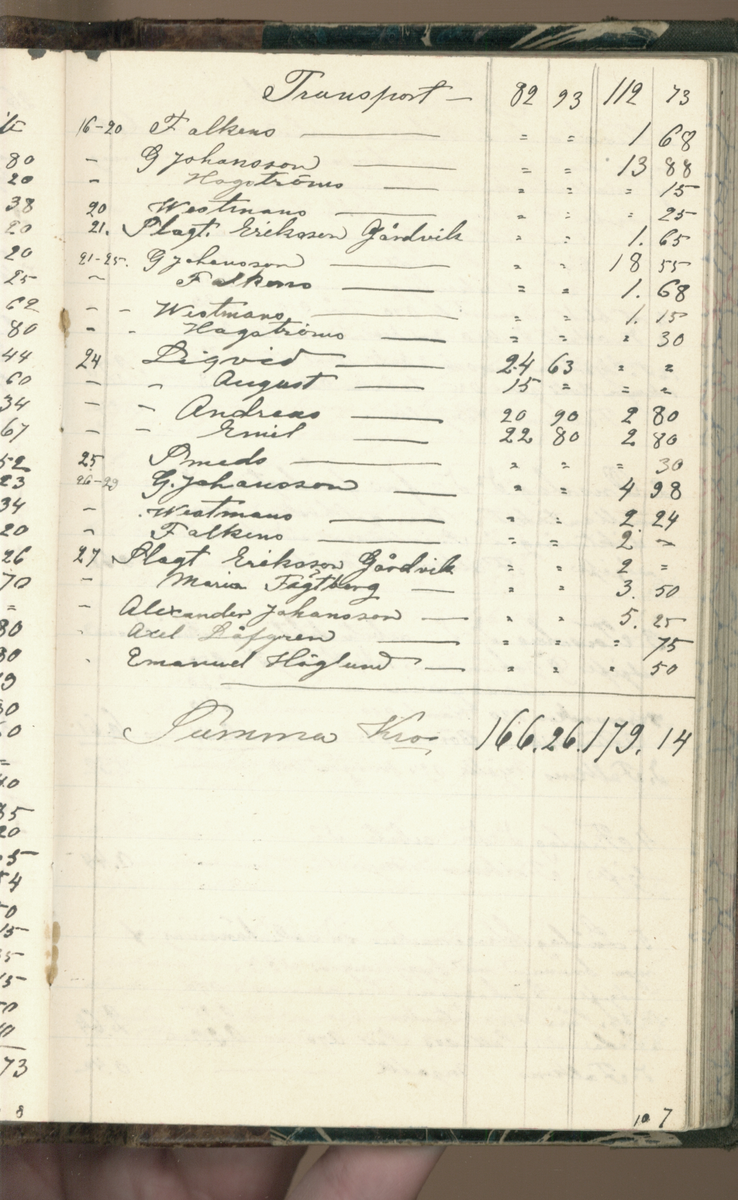 Transport — 82 93 112 73
16-20 Falkens — = = 1 68
80 - G Johansson — = = 13 88
20 - Hagströms — = = = 15
38 20 Westmans — = = = 25
20 21. Slagt. Eriksson Gårdvik = = 1. 65
20 21-25. G Johansson — = = 18 55
25 - Falkens — = = 1. 68
62 - - Westmans — = = 1. 15
80 - - Hagströms — = = = 30
44 24 Liqvid — 24 63 = =
60 - - August — 15 = = =
34 - - Andreas — 20 90 2 80
67 - - Emil — 22 80 2 80
52 25 — = = = 30
23 26-29 G. Johansson — = = 4 98
34 - Westmans — = = 2 24
20 - Falkens — = = 2 =
26 27 Slagt Eriksson Gårdvik = = 2 =
70 - Maria Fägtborg — = = 3. 50
= - Alexander Johansson — = = 5. 25
80 - Axel Löfgren — = = = 75
- Emanuel Höglund — = = = 50
Summa Kro, 166. 26. 179. 14
73
8
10 7